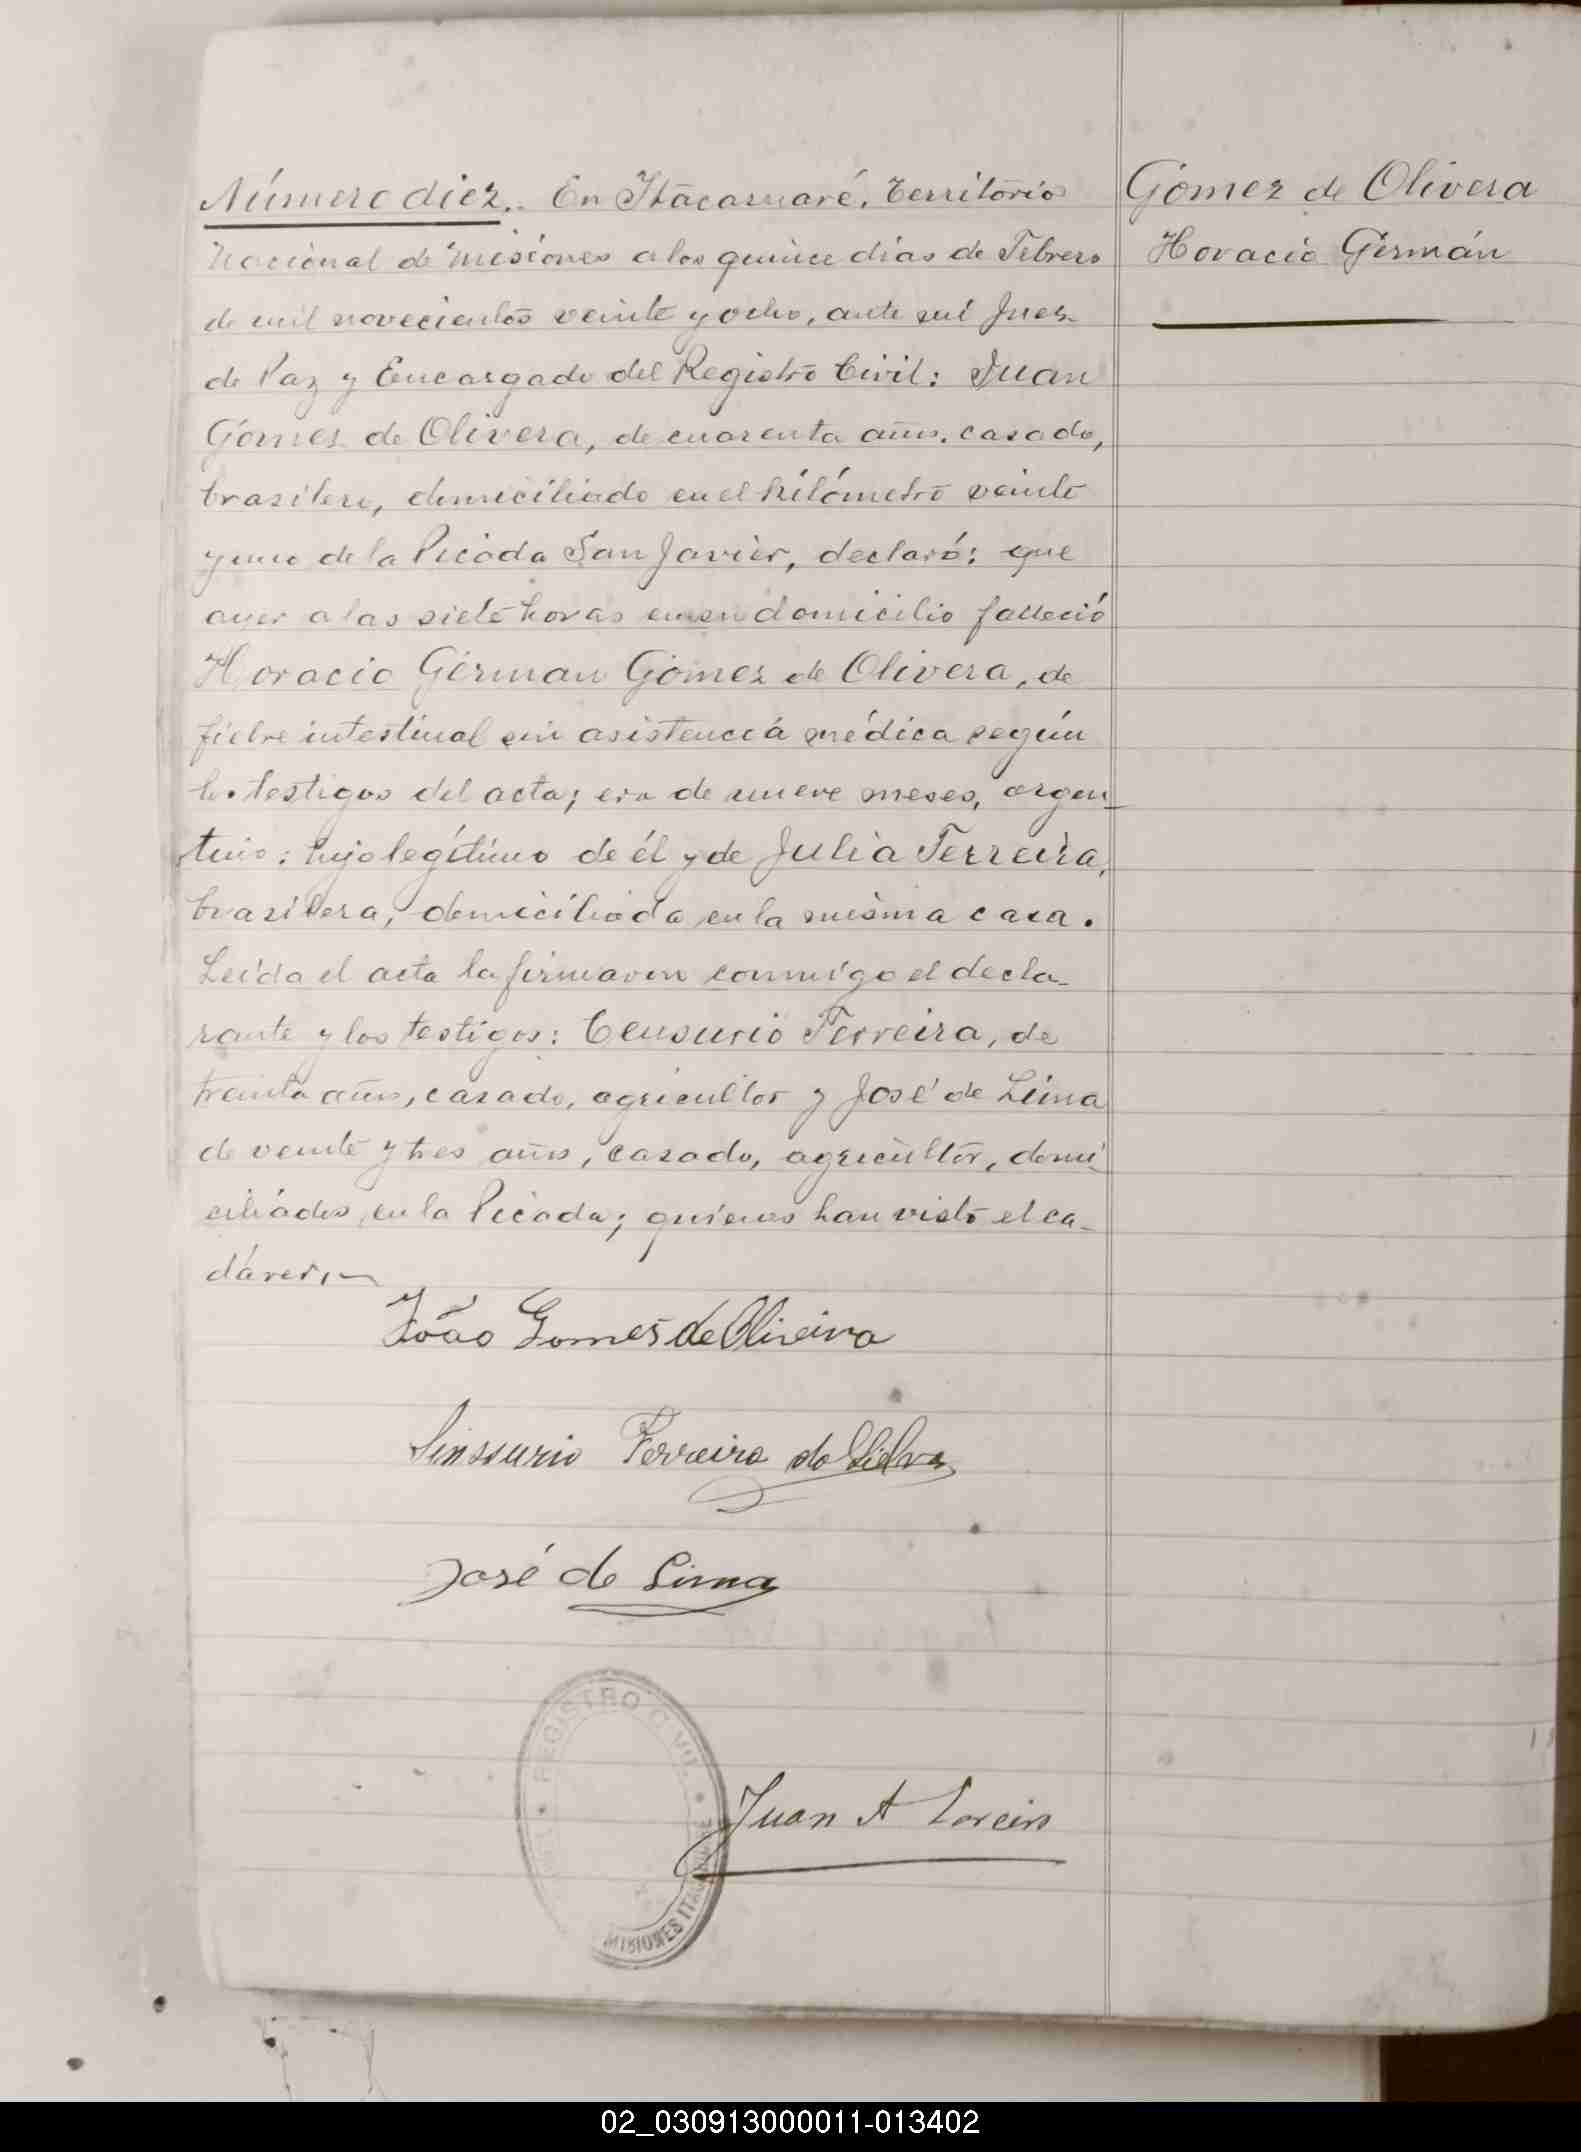 Número diez.. En Itacaruaré, Territorio
Nacional de Misiones a los quince días de Febrero
de mil novecientos veinte y ocho, ante mí Juez
de Paz y Encargado del Registro Civil: Juan
Gómez de Olivera, de cuarenta años, casado,
brasilero, domiciliado en el kilómetro veinte
y uno de la Picada San Javier, declaró: que
ayer a las siete horas en su domicilio falleció
Horacio Germán Gómez de Olivera, de
fiebre intestinal sin asistencia médica según
los testigos del acta; era de nueve meses, argen-
tino; hijo legítimo de él y de Julia Ferreira,
brasilera, domiciliada en la misma casa.
Leída el acta la firmaron conmigo el decla-
rante y los testigos: Censurio Ferreira, de
treinta años, casado, agricultor y José de Lima
de veinte y tres años, casado, agricultor, domi-
ciliados en la Picada; quienes han visto el ca-
dáver.—
João Gomes de Oliveira
Sinssurio Ferreira da Silva
José de Lima
REGISTRO CIVIL
MISIONES
Juan A
Gómez de Olivera
Horacio Germán
02_030913000011-013402